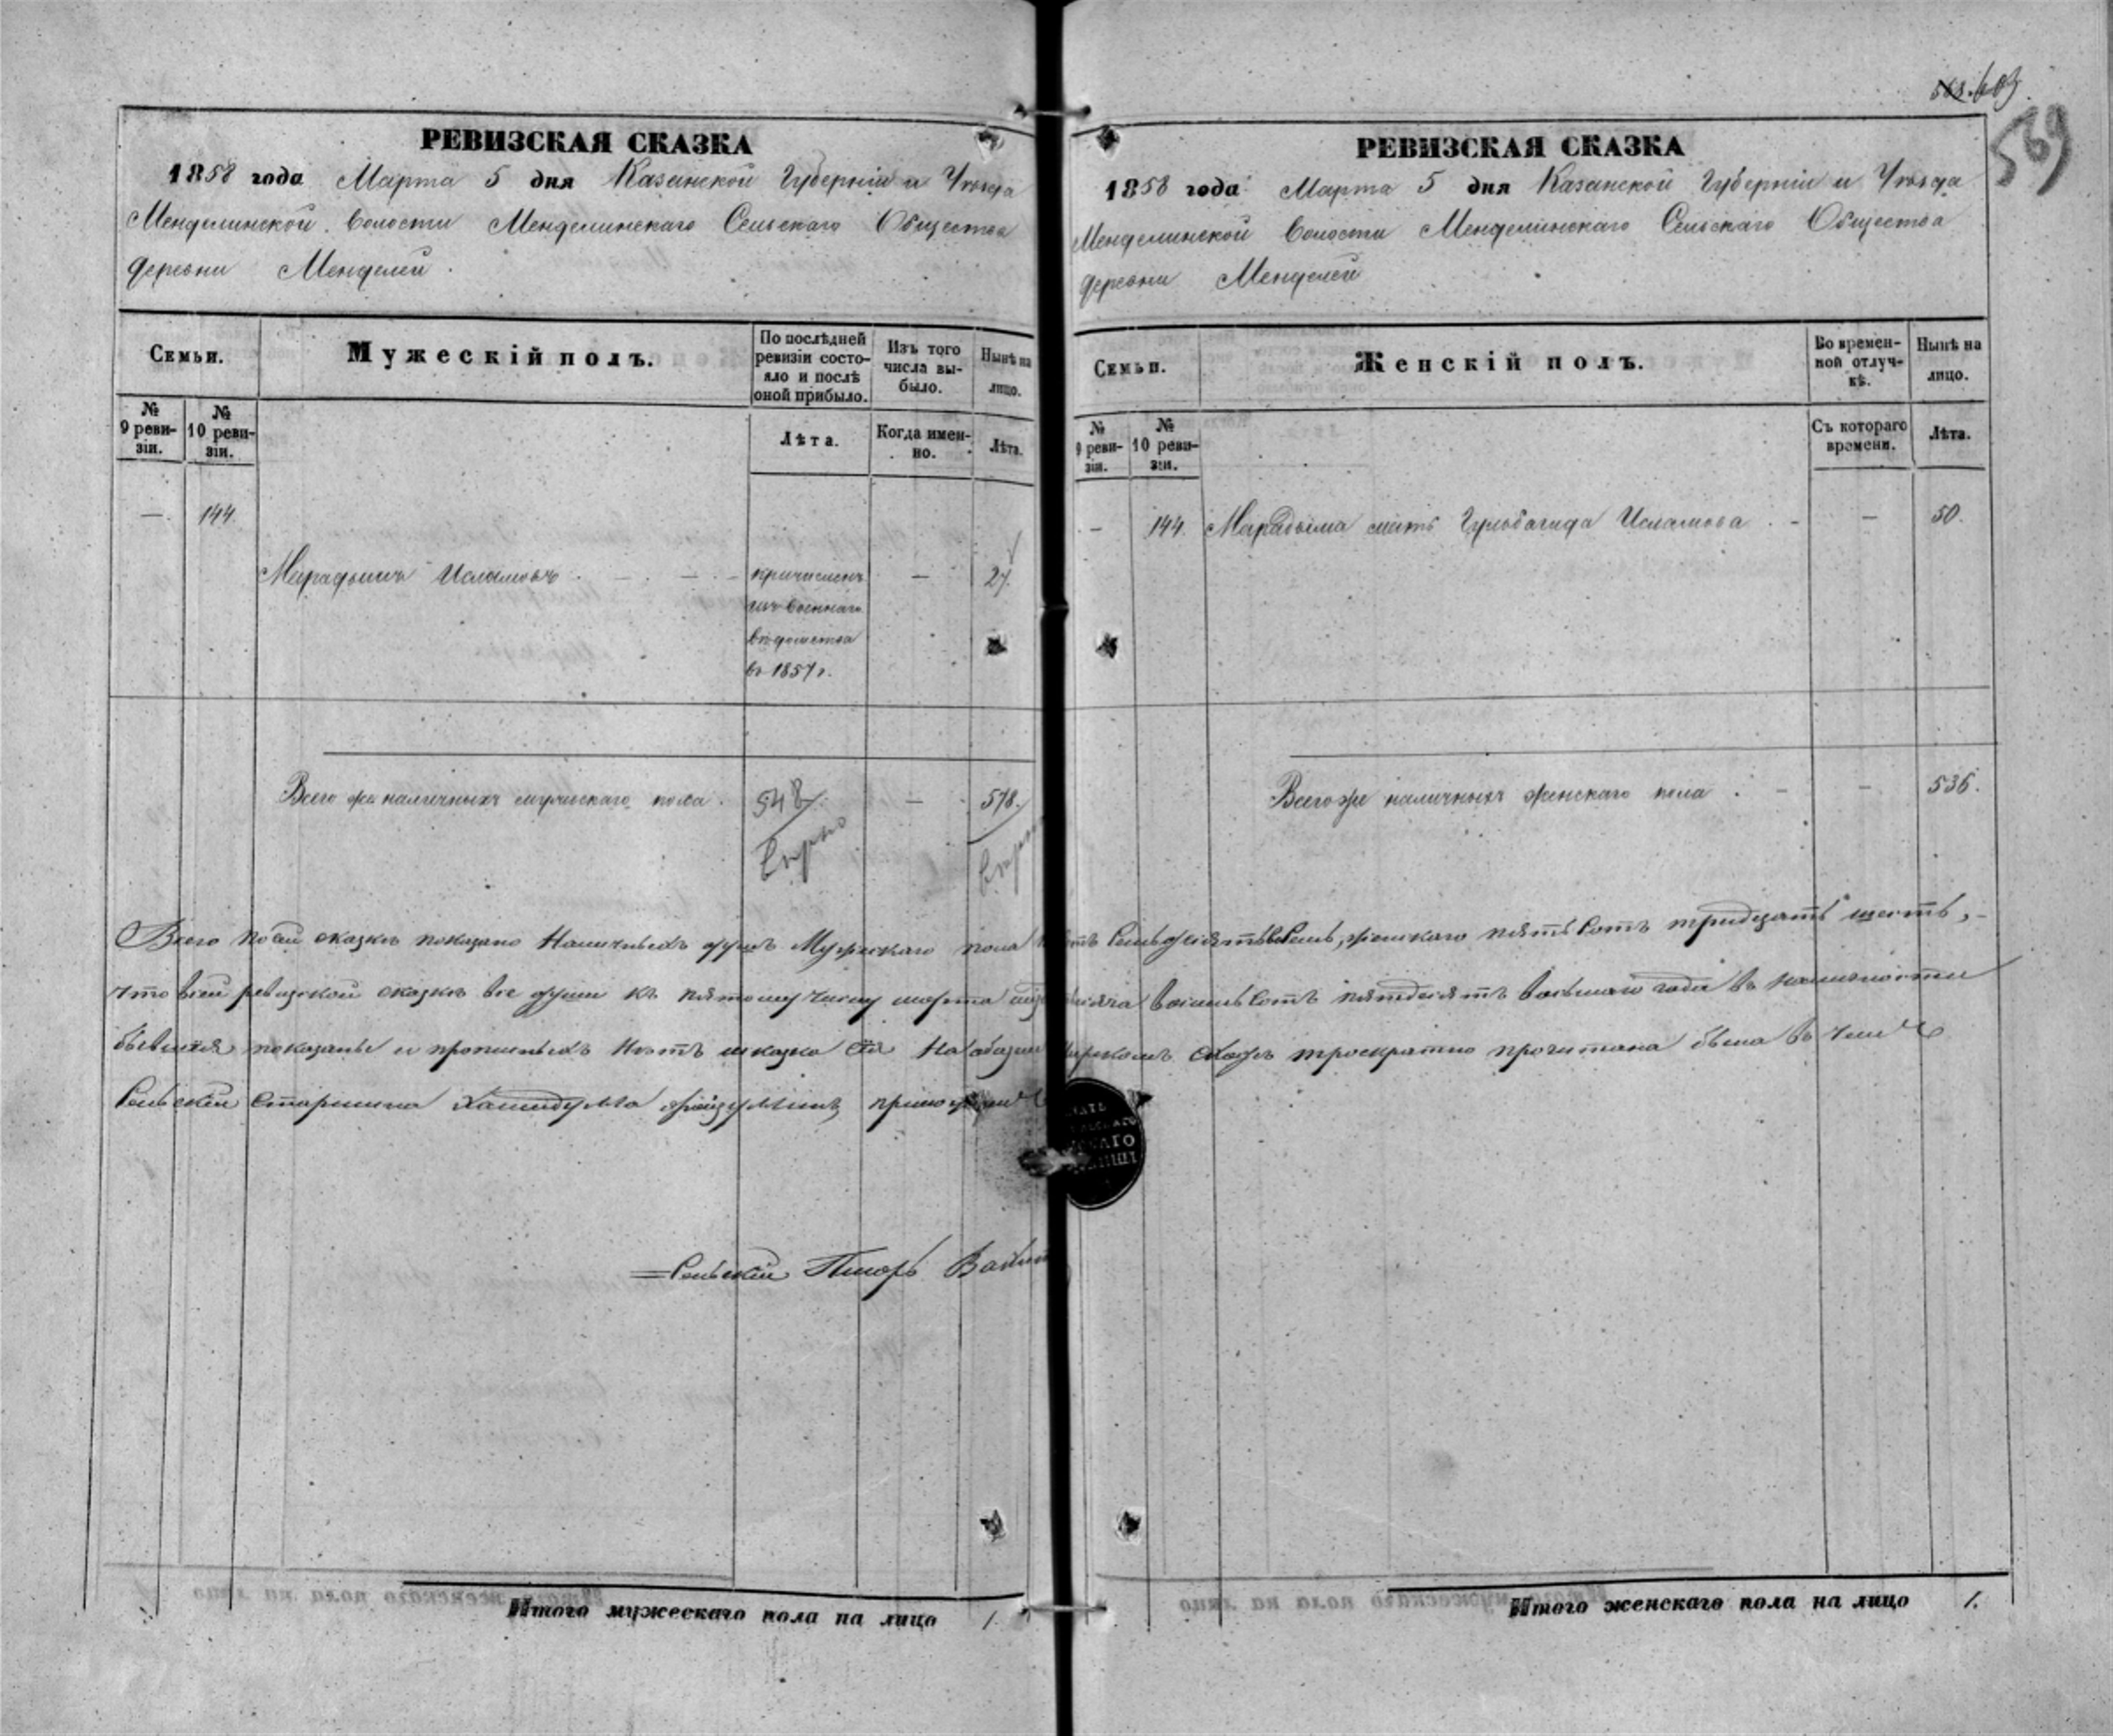 563. 603
569
РЕВИЗСКАЯ СКАЗКА
1858 года Марта 5 дня Казанской Губерніи и Уѣзда
Менделинской Волости Менделинскаго Сельскаго Общества
деревни Менделей.
Семьи.
Мужескій полъ.
По послѣдней ревизіи состояло и послѣ оной прибыло.
Изъ того числа выбыло.
Нынѣ на лицо.
№ 9 ревизіи.
№ 10 ревизіи.
Лѣта.
Когда именно.
Лѣта.
— 144
Мирадымъ Исламовъ — — причисленъ — 27.
изъ военнаго
вѣдомства
въ 1857 г.
Всего же наличныхъ мужескаго пола 548 — 578.
Вѣрно
Вѣрно
Всего по сей сказкѣ показано Наличныхъ душъ Мужескаго пола
что всей ревизской сказкѣ все души къ пятому числу марта
показаны и прописныхъ нѣтъ и сказка сія На
Сельскій Старшина
Сельскій Писарь
Итого мужескаго пола на лицо 1.
РЕВИЗСКАЯ СКАЗКА
1858 года Марта 5 дня Казанской Губерніи и Уѣзда
Менделинской Волости Менделинскаго Сельскаго Общества
деревни Менделей
Семьи.
Женскій полъ.
Во временной отлучкѣ.
Нынѣ на лицо.
№ 9 ревизіи.
№ 10 ревизіи.
Съ котораго времени.
Лѣта.
— 144. Мирадыма мать Гульбагида Исламова — — 50.
Всего же наличныхъ женскаго пола — — 536.
семьдесятъ восемь, женскаго пятьсотъ тридцать шесть,
восемьсотъ пятьдесятъ восьмаго года въ наличности
сходѣ троекратно прочитана была въ чемъ
Итого женскаго пола на лицо 1.